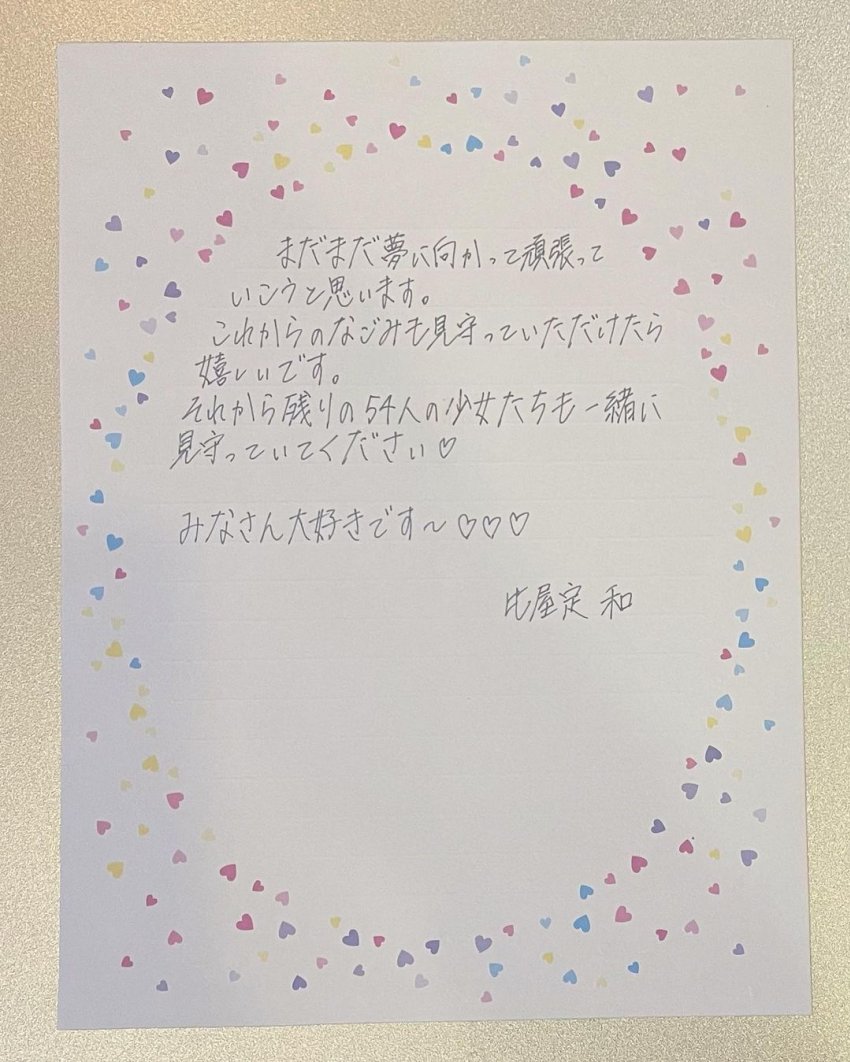 まだまだ夢に向かって頑張って
いこうと思います。
これからのなごみも見守っていただけたら
嬉しいです。
それから残りの54人の少女たちも一緒に
見守っていてください♡
みなさん大好きです〜♡♡♡
比屋定 和